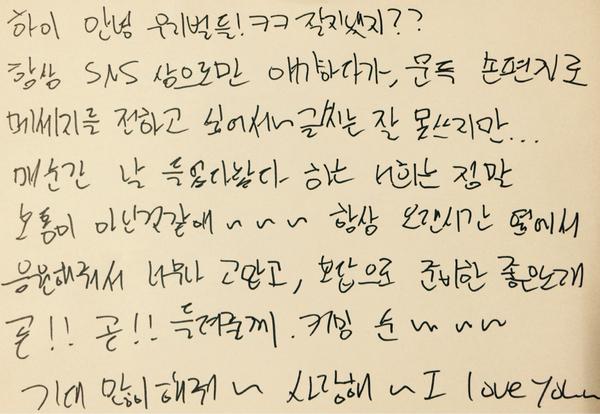 하이 안녕 우리벌들! ㅋㅋ 잘지냈지??
항상 SNS 상으로만 얘기하다가, 문득 손편지로
메세지를 전하고 싶어서~ 글치는 잘 못쓰지만...
매순간 날 들었다놨다 하는 너희는 정말
보통이 아닌것같애 ~ ~ ~ 항상 오랜시간 옆에서
응원해줘서 너무나 고맙고, 보답으로 준비한 좋은노래
곧!! 곧!! 들려줄께. 커밍 순 ~ ~ ~
기대 많이해줘 ~ 사랑해 ~ I love you~